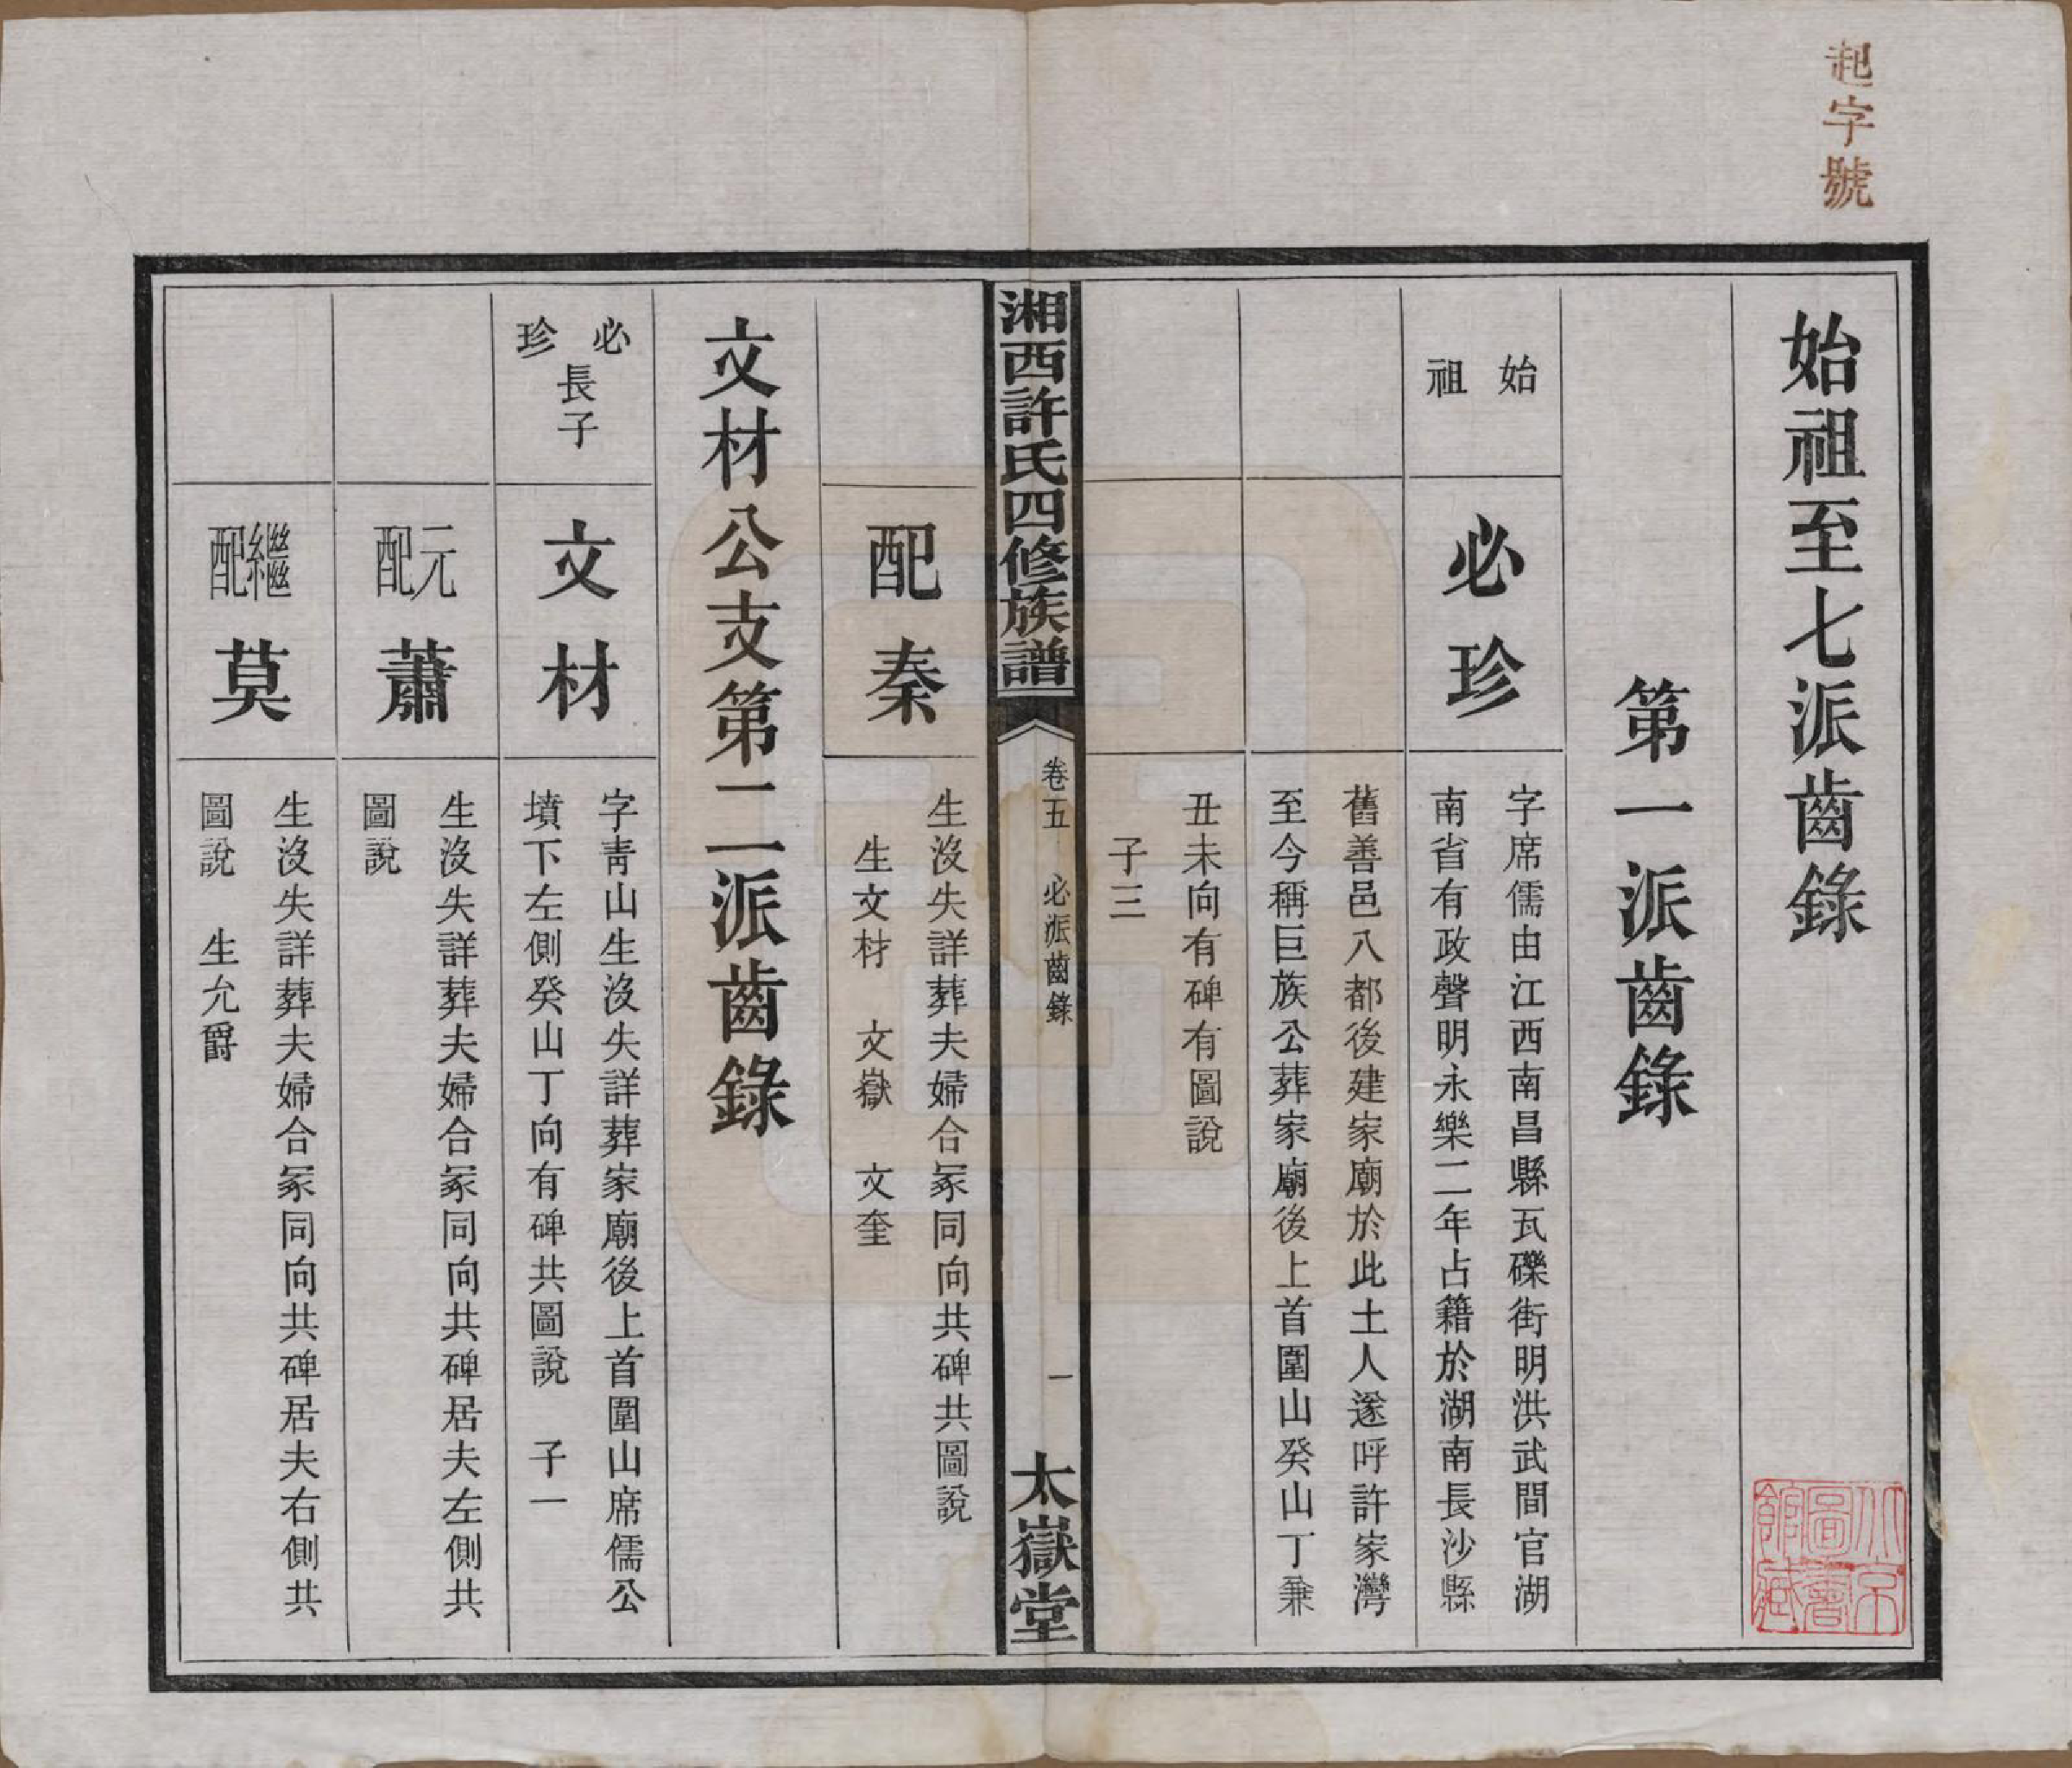 起字號
始祖至七派齒錄
第一派齒錄
始祖
必珍
字席儒由江西南昌縣瓦礫街明洪武間官湖
南省有政聲明永樂二年占籍於湖南長沙縣
舊善邑八都後建家廟於此土人遂呼許家灣
至今稱巨族公葬家廟後上首圍山癸山丁兼
丑未向有碑有圖說
子三
湘西許氏四修族譜
卷五
必派齒錄
一
太嶽堂
配秦
生沒失詳葬夫婦合冢同向共碑共圖說
生文材 文嶽 文奎
文材公支第二派齒錄
必珍長子
文材
字靑山生沒失詳葬家廟後上首圍山席儒公
墳下左側癸山丁向有碑共圖說 子一
元配蕭
生沒失詳葬夫婦合冢同向共碑居夫左側共
圖說
繼配莫
生沒失詳葬夫婦合冢同向共碑居夫右側共
圖說 生允爵
北京
圖書
館藏